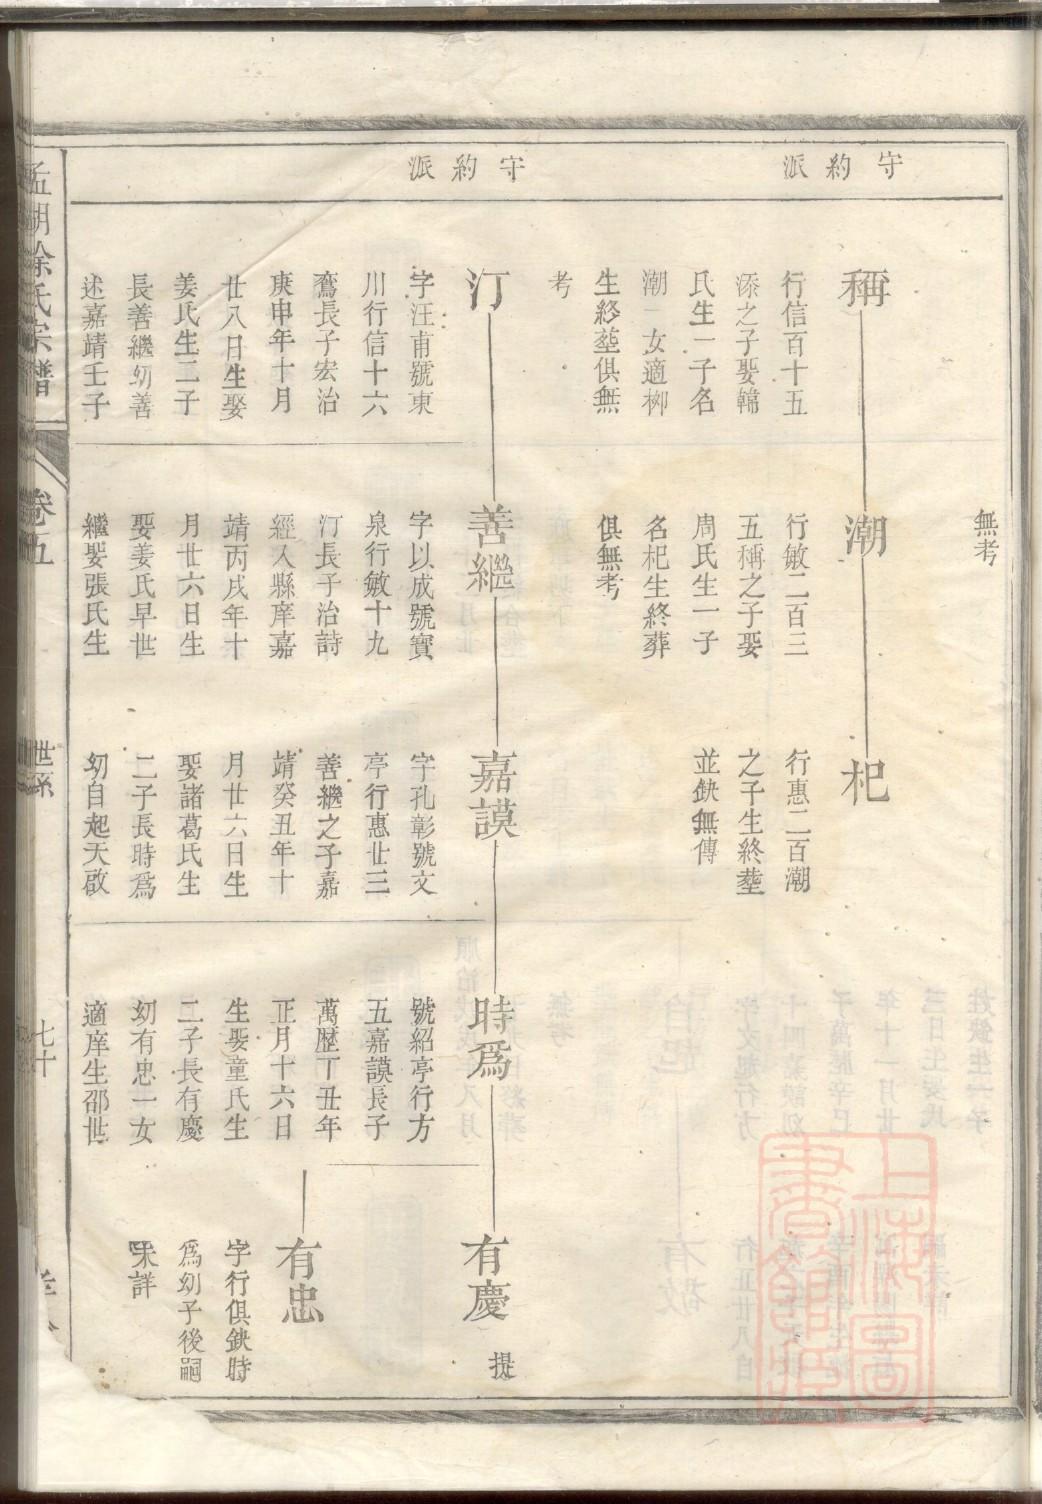 守約派
守約派
無考
稱
行信百十五
添之子娶韓
氏生一子名
潮一女適柳
生終塟俱無
考
潮
行敏二百三
五稱之子娶
周氏生一子
名杞生終葬
俱無考
杞
行惠二百潮
之子生終塟
並鈌無傳
汀
字汪甫號東
川行信十六
鸞長子宏治
庚申年十月
廿八日生娶
姜氏生二子
長善繼㓜善
述嘉靖壬子
善繼
字以成號寳
泉行敏十九
汀長子治詩
經入縣庠嘉
靖丙戌年十
月廿六日生
娶姜氏早世
繼娶張氏生
嘉謨
字孔彰號文
亭行惠廿三
善繼之子嘉
靖癸丑年十
月廿六日生
娶諸葛氏生
二子長時爲
㓜自起天啟
時爲
號紹亭行方
五嘉謨長子
萬歴丁丑年
正月十六日
生娶童氏生
二子長有慶
㓜有忠一女
適庠生邵世
有慶
提
有忠
字行俱鈌時
爲㓜子後嗣
未詳
孟湖徐氏宗譜
卷五
世系
七十
上海圖書館藏